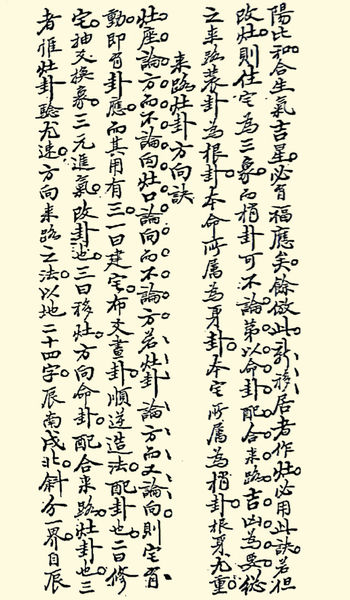 陽比和合生氣吉星必有福應矣餘倣此新移居者作灶必用此訣若但
改灶則住宅為三象而梢卦可不論第以命卦配合来路吉凶為要総
之来路装卦為根卦本命所属為身卦本宅所属為梢卦根身尤重
来路灶卦方向訣
灶座論方而不論向灶口論向而不論方若灶卦論方而又論向則宅有
動即有卦應而其用有三一曰建宅布爻畫卦順逆造法配卦也二曰修
宅抽爻换象三元進氣改卦也三曰移灶方向命卦配合来路灶卦也三
者惟灶卦驗尤速方向来路之法以地二十四字辰南戌北斜分一界自辰